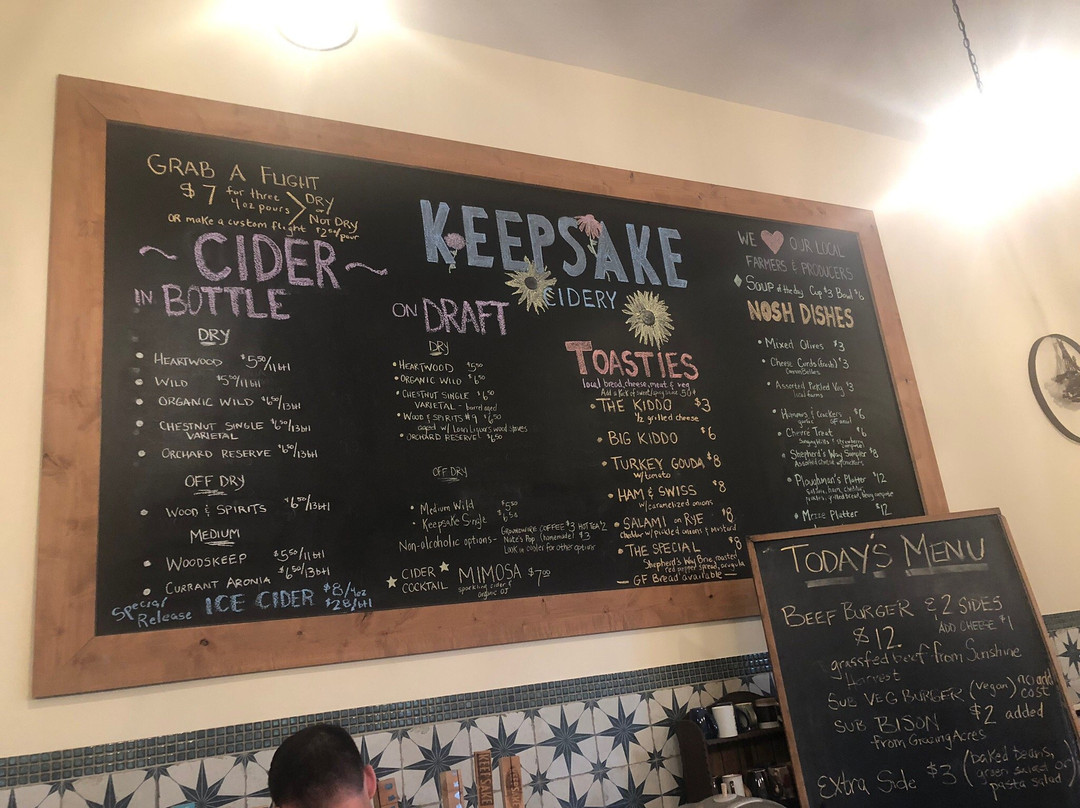 GRAB A FLIGHT
$7 for three
4oz pours
DRY
or
NOT DRY
OR make a custom flight $2.50/pour
~ CIDER ~
IN BOTTLE
DRY
• HEARTWOOD $5.50/11btl
• WILD $5.50/11btl
• ORGANIC WILD $6.50/13btl
• CHESTNUT SINGLE $6.50/13btl
VARIETAL
• ORCHARD RESERVE $6.50/13btl
OFF DRY
• WOOD & SPIRITS $6.50/13btl
MEDIUM
• WOODSKEEP $5.50/11btl
• CURRANT ARONIA $6.50/13btl
Special
Release
ICE CIDER $8/4oz
$28/btl
KEEPSAKE
CIDERY
ON DRAFT
DRY
• HEARTWOOD $5.00
• ORGANIC WILD $6.50
• CHESTNUT SINGLE $6.50
VARIETAL - barrel aged
• WOOD & SPIRITS #9 $6.50
aged w/ Loon Liquors wood staves
• ORCHARD RESERVE $6.50
OFF DRY
• Medium Wild $5.50
• Keepsake Single
Non-alcoholic options-
COFFEE $3 HOT TEA $2
Nate's Pop (homemade) $3
Look in cooler for other options
CIDER
COCKTAIL
MIMOSA $7.00
sparkling cider &
organic OJ
TOASTIES
local bread, cheese, meat & veg
• THE KIDDO $3
1/2 grilled cheese
• BIG KIDDO $6
• TURKEY GOUDA $8
w/tomato
• HAM & SWISS $8
w/caramelized onions
• SALAMI on RYE $8
cheddar w/ pickled onions & mustard
• THE SPECIAL $8
Shepherd's Way Brie, roasted
red pepper spread, arugula
— GF Bread available —
WE ♥ OUR LOCAL
FARMERS & PRODUCERS
SOUP of the day Cup $3 Bowl $6
NOSH DISHES
• Mixed Olives $3
• Cheese Curds (fresh) $3
• Assorted Pickled Veg $3
local farms
• Hummus & Crackers $6
• Chevre Treat $6
• Shepherd's Way Sampler $8
Assorted cheese w/crackers
• Ploughman's Platter $12
• Mezze Platter $12
TODAY'S MENU
BEEF BURGER & 2 SIDES
$12
ADD CHEESE $1
grassfed beef from Sunshine
Harvest
SUB VEG BURGER (vegan) no add
cost
SUB BISON $2 added
-from Grazing Acres
Extra Side $3 (baked beans,
green salad or
pasta salad
KEEPSAKE